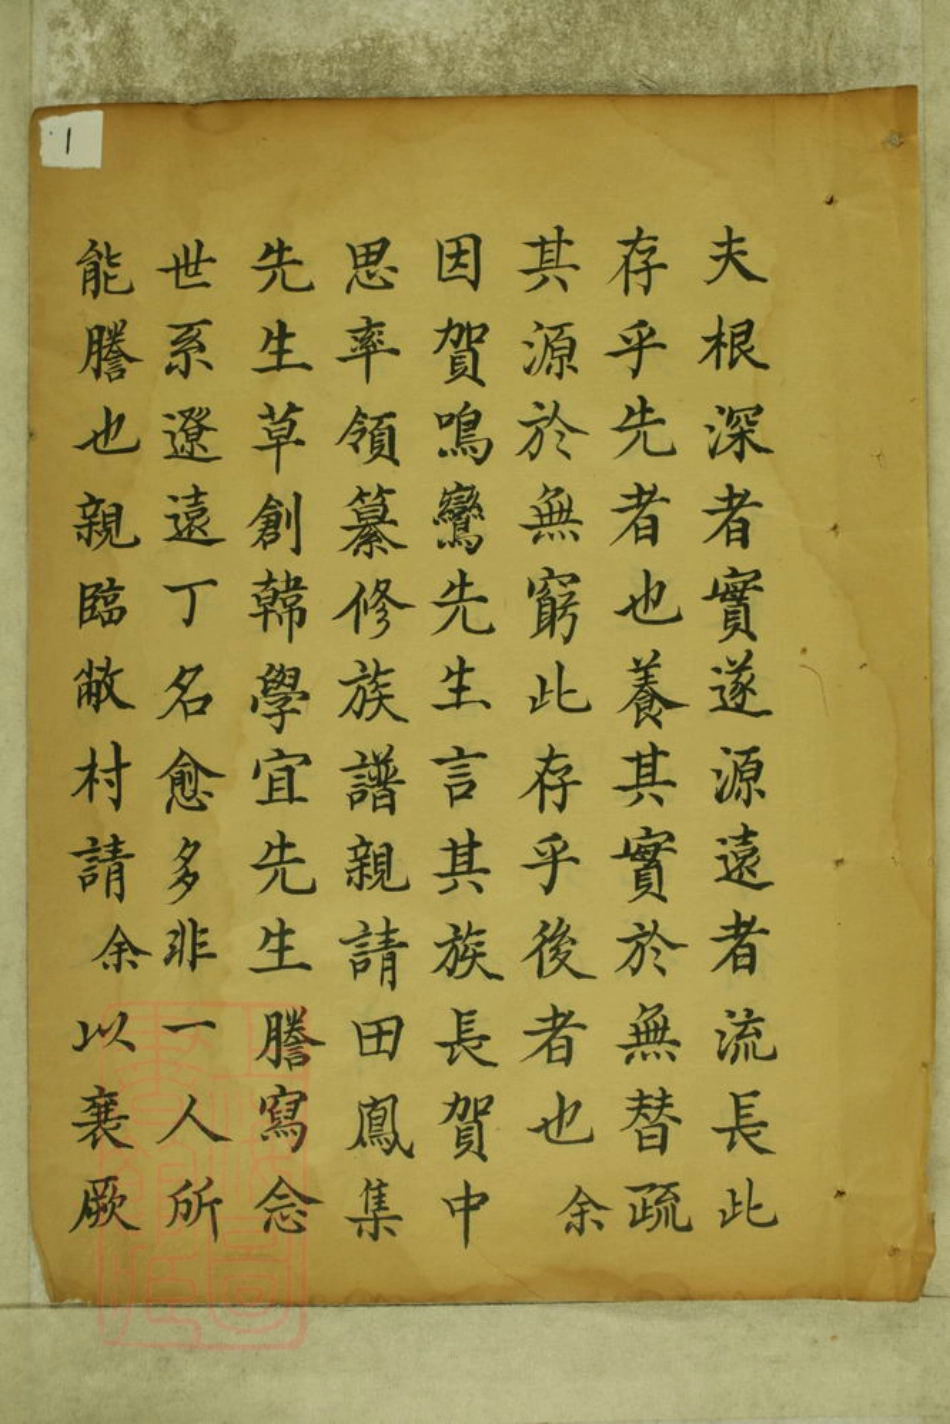 夫根深者實遂源遠者流長此
存乎先者也養其實於無替疏
其源於無窮此存乎後者也余
因賀鳴鸞先生言其族長賀中
思率領纂修族譜親請田鳳集
先生草創韓學宜先生謄寫念
世系遼遠丁名愈多非一人所
能謄也親臨敝村請余以襄厥
1